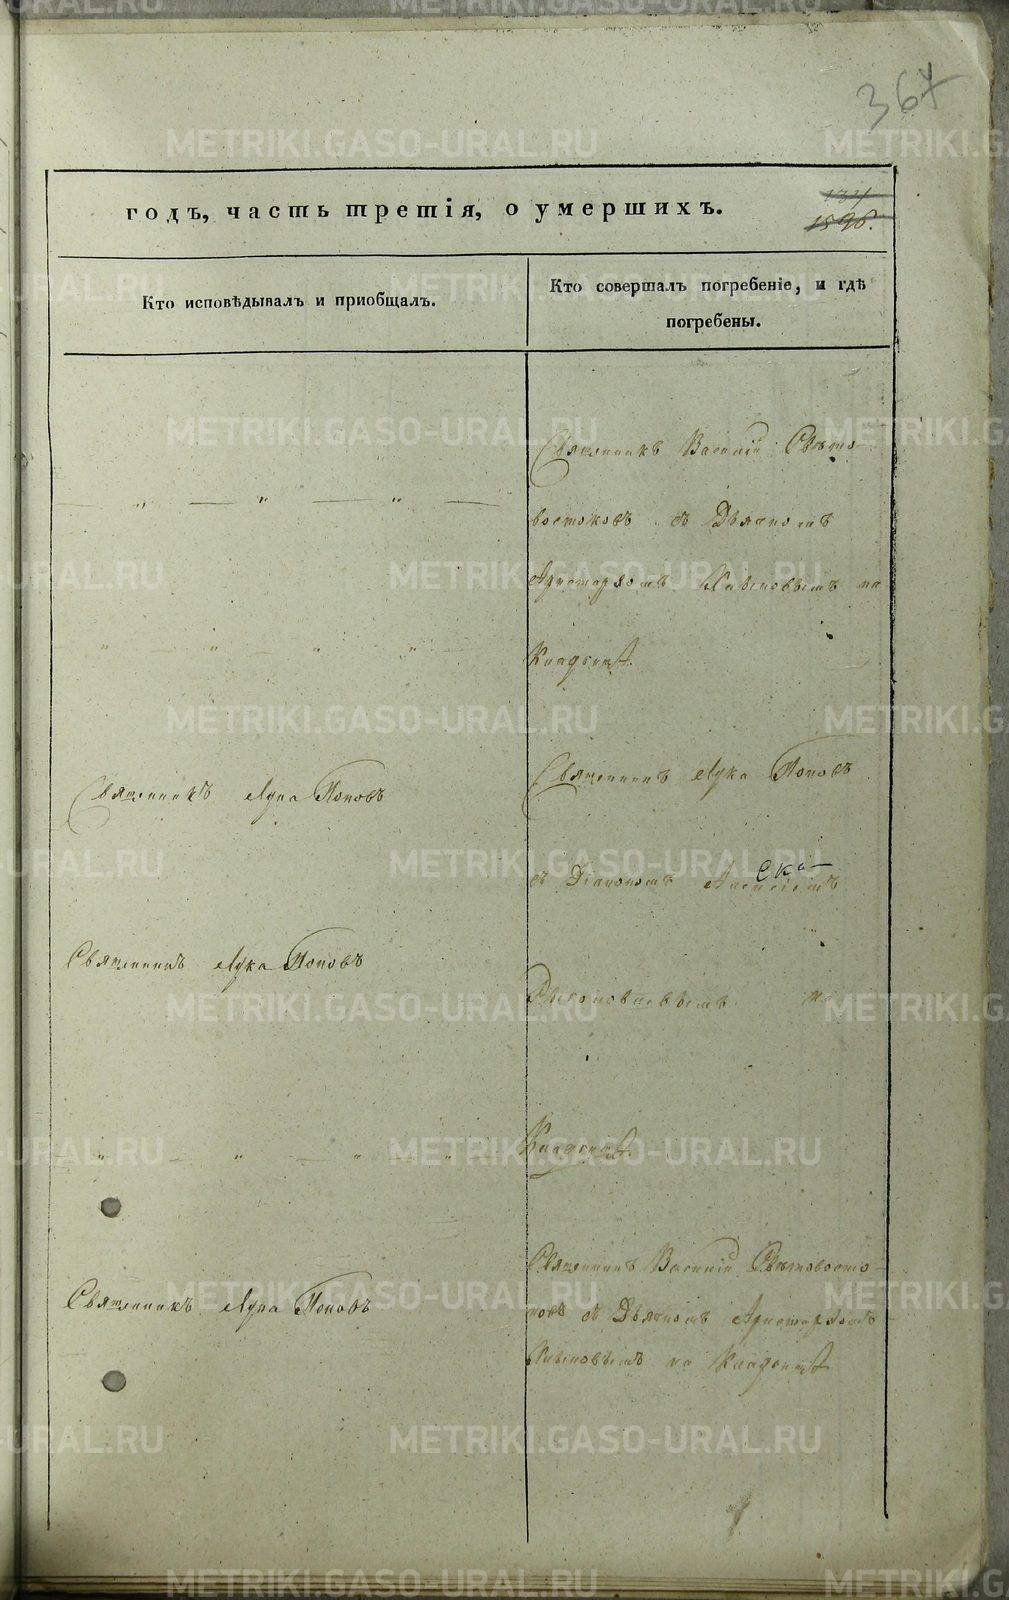 367
годъ, часть третія, о умершихъ.
Кто исповѣдывалъ и приобщалъ.
Кто совершалъ погребеніе, и гдѣ
погребены.
Священникъ Василій Свѣто-
востоковъ съ Дьячкомъ
Аристархомъ на
Кладбищѣ.
Священникъ Лука Поповъ
Священникъ Лука Поповъ
съ Діакономъ
Священникъ Лука Поповъ
на
Кладбищѣ.
Священникъ Василій Свѣтовосто-
ковъ съ Дьячкомъ Аристархомъ
Священникъ Лука Поповъ
на Кладбищѣ
METRIKI.GASO-URAL.RU